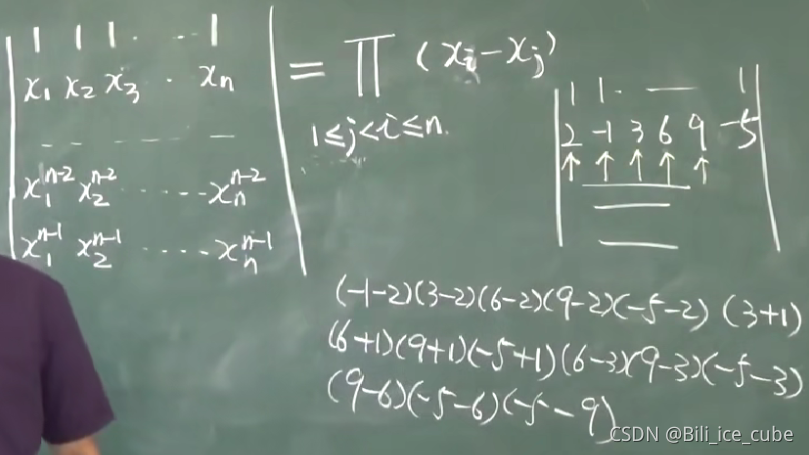 | 1 1 1 . . . 1 | = ∏ (xᵢ - xⱼ)
x₁ x₂ x₃ . xₙ
1≤j<i≤n.
x₁ⁿ⁻² x₂ⁿ⁻² ...... xₙⁿ⁻²
x₁ⁿ⁻¹ x₂ⁿ⁻¹ ..... xₙⁿ⁻¹
| 1 1 . — 1 |
2 -1 3 6 9 -5
↑ ↑ ↑ ↑ ↑
(-1-2)(3-2)(6-2)(9-2)(-5-2) (3+1)
(6+1)(9+1)(-5+1)(6-3)(9-3)(-5-3)
(9-6)(-5-6)(-5-9)
CSDN @Bili_ice_cube